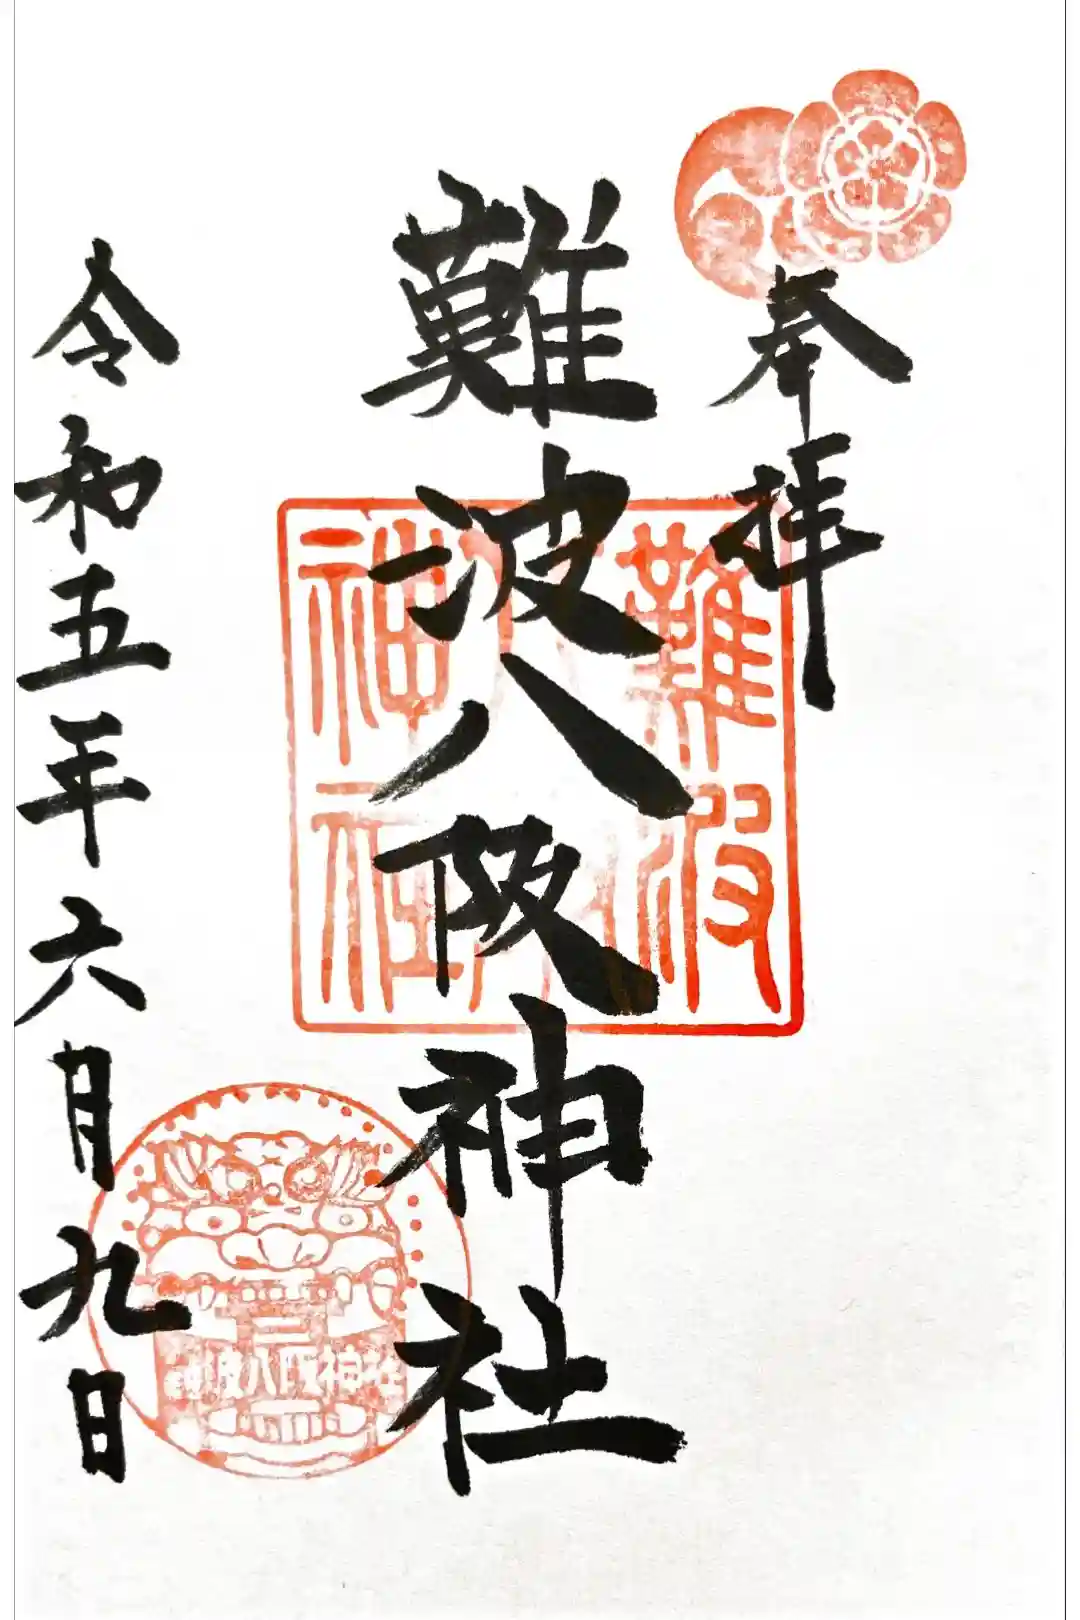 奉拝
難波八阪神社
難波
神社
令和五年六月九日
難波八阪神社